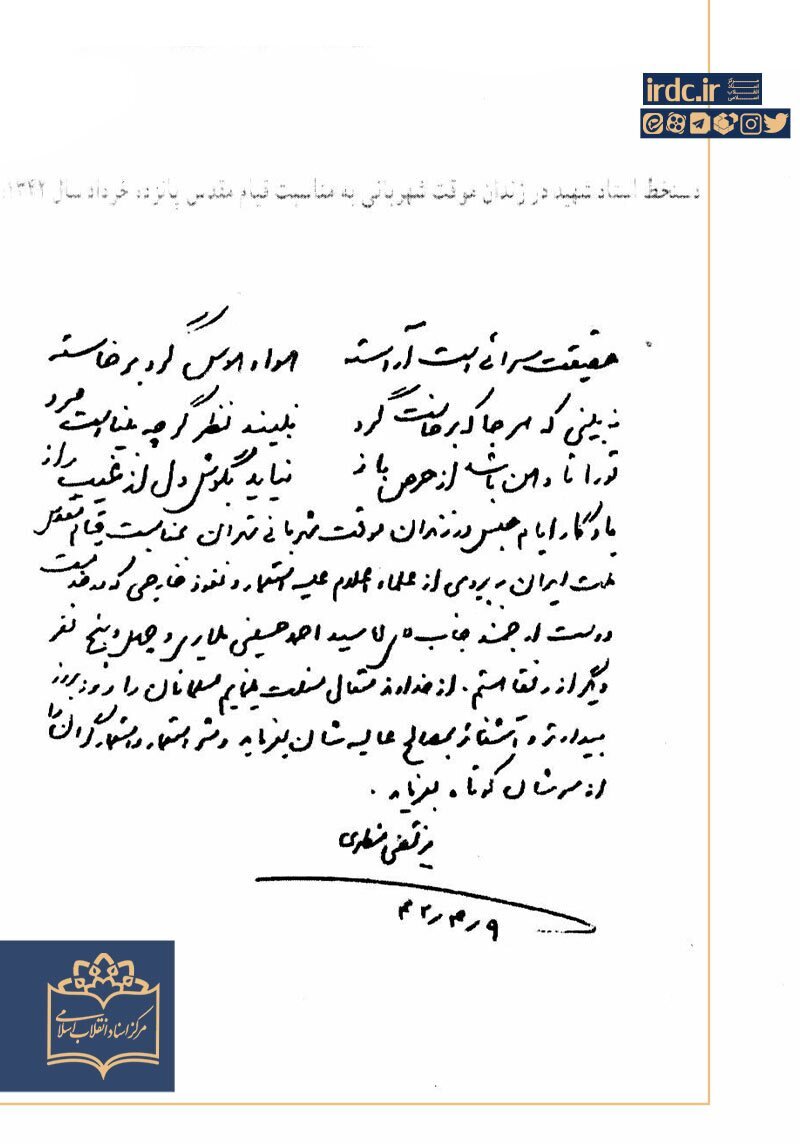 irdc.ir
مرکز اسناد انقلاب اسلامی
دستخط استاد شهید در زندان موقت شهربانی به مناسبت قیام مقدس پانزده خرداد سال ۱۳۴۲
حقیقت سرائی است آراسته هوا و هوس گرد برخاسته
نه بینی که هر جا که برخاست گرد نبیند نظر گرچه بیناست مرد
تو را تا دهن باشد از حرص باز نیاید بگوش دل از غیب راز
یادگار ایام حبس در زندان موقت شهربانی تهران بمناسبت قیام مقدس
ملت ایران به پیروی از علماء اعلام علیه استعمار و نفوذ خارجی که در خدمت
دوست ارجمند جناب آقای سید احمد حسینی و چهل و پنج نفر
دیگر از رفقا هستم. از خداوند متعال مسئلت مینمایم مسلمانان را روز بروز
بیدارتر و آشناتر بمصالح عالیه شان بفرماید و شر استعمار و استعمارگران را
از سرشان کوتاه بفرماید.
مرتضی مطهری
۹ ر ۴ ر ۴۲
مرکز اسناد انقلاب اسلامی